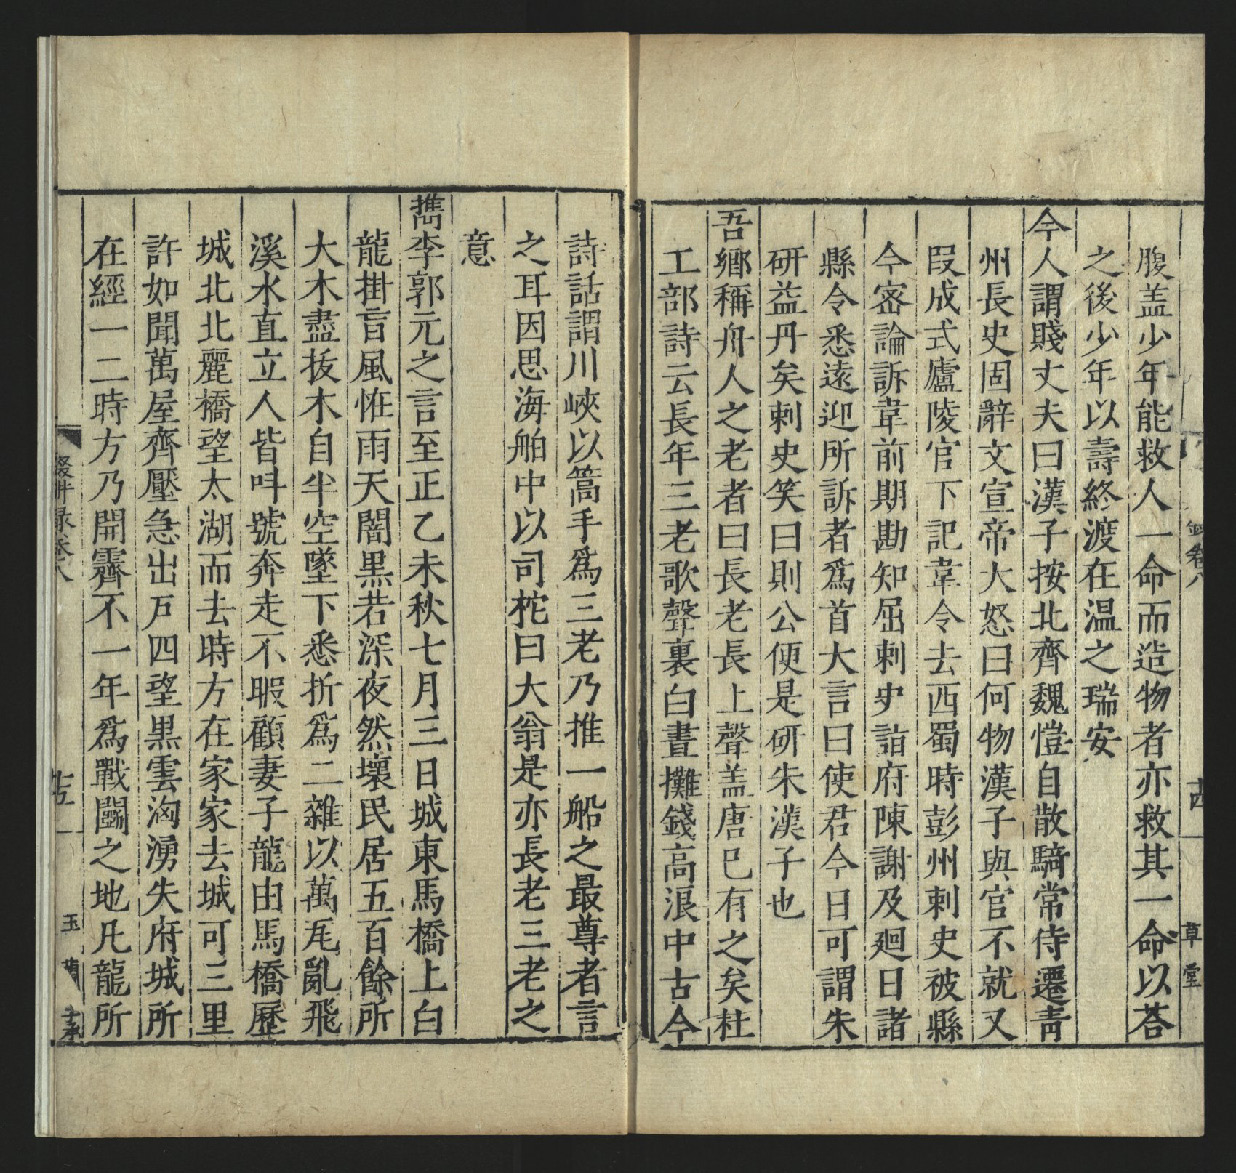 腹盖少年能救人一命而造物者亦救其一命以荅
之後少年以壽終渡在温之瑞安
今人謂賤丈夫曰漢子按北齊魏愷自散騎常侍遷青
州長史固辭文宣帝大怒曰何物漢子與官不就又
叚成式廬陵官下記韋令去西蜀時彭州刺史被縣
令密論訴韋前期勘知屈刺史詣府陳謝及廻日諸
縣令悉遠迎所訴者爲首大言曰使君今日可謂朱
研益丹矣刺史笑曰則公便是研朱漢子也
吾鄉稱舟人之老者曰長老長上聲盖唐已有之矣杜
工部詩云長年三老歌聲裏白晝攤錢高浪中古今
詩話謂川峽以篙手爲三老乃推一船之最尊者言
之耳因思海舶中以司柁曰大翁是亦長老三老之
意
檇李郭元之言至正乙未秋七月三日城東馬橋上白
龍掛言風恠雨天闇黒若深夜然壞民居五百餘所
大木盡拔木自半空墜下悉折爲二雜以萬瓦亂飛
溪水直立人皆呌號奔走不暇顧妻子龍由馬橋歷
城北北麗橋望太湖而去時方在家家去城可三里
許如聞萬屋齊壓急出戸四望黒雲洶湧失府城所
在經一二時方乃開霽不一年爲戰鬭之地凡龍所
卷八
十四
草堂
輟畊录卷八
十五
玉蘭